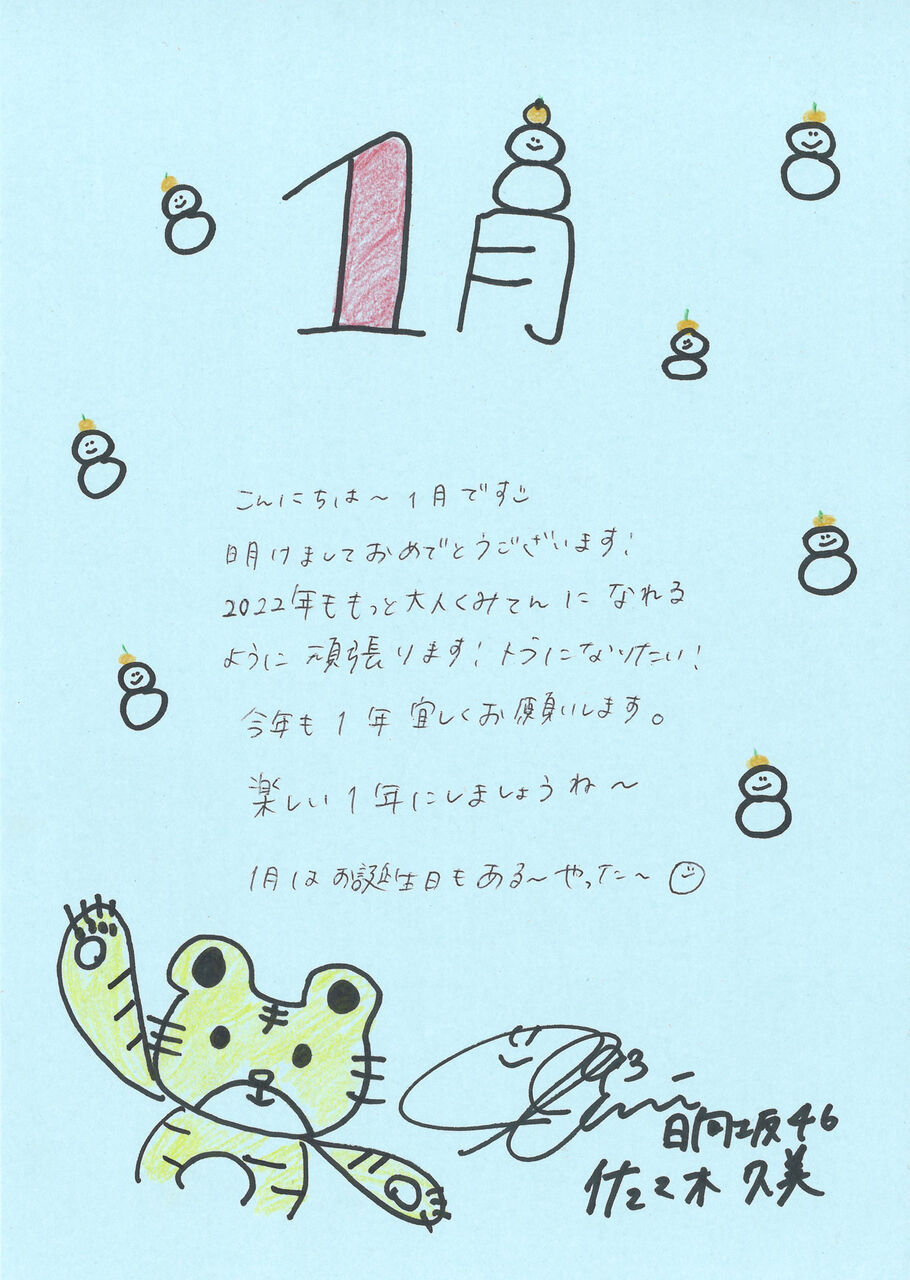 1月
こんにちは〜 1月です
明けましておめでとうございます!
2022年ももっと大人くみてんになれる
ように頑張ります! トラになりたい!
今年も1年宜しくお願いします。
楽しい1年にしましょうね〜
1月はお誕生日もある〜やった〜
日向坂46
佐々木久美